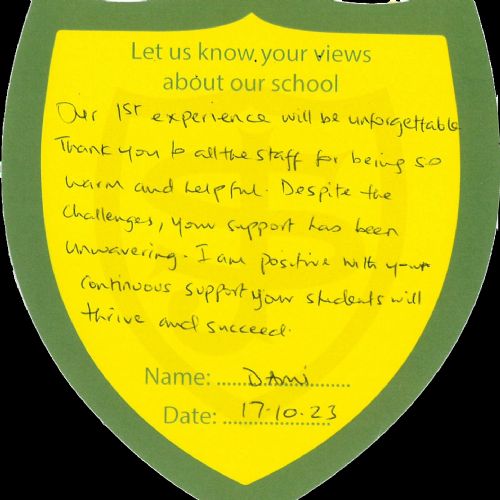 Let us know your views
about our school
Our 1st experience will be unforgettable
Thank you to all the staff for being so
warm and helpful. Despite the
challenges, your support has been
unwavering. I am positive with your
continuous support your students will
thrive and succeed.
Name: ..... Dami .....
Date: ..... 17.10.23 .....